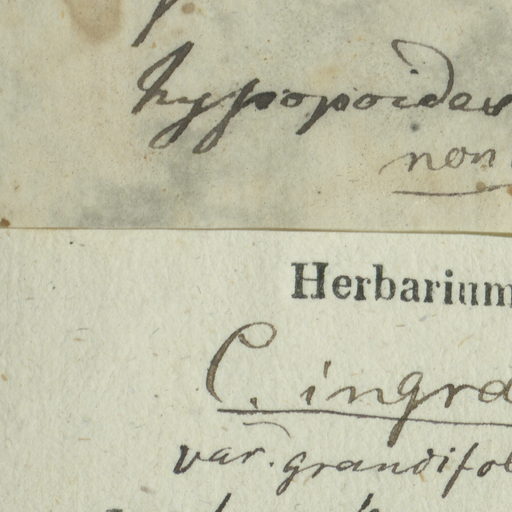 hypopoides
non
Herbarium
C. ingra
var. grandifol